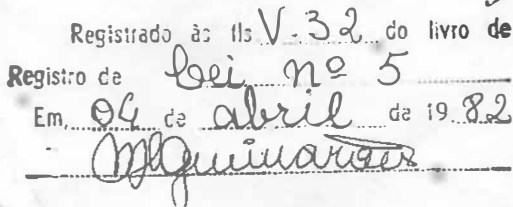 Registrado às fls V.32 do livro de
Registro de Lei nº 5
Em, 04 de abril de 1982
MGuimarães